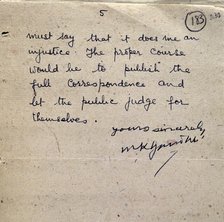 5
183
must say that it does me an
injustice. The proper course
would be to publish the
full correspondence and
let the public judge for
themselves.
yours sincerely
MKGandhi